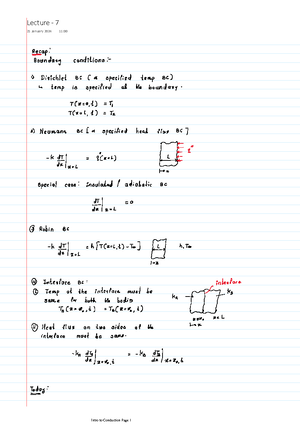 Lecture - 7
31 January 2024 11:06
Recap:
Boundary conditions:-
1) Dirichlet BC (a specified temp BC)
↳ temp is specified at the boundary.
T(x=0,t) = T₁
T(x=L,t) = T₂
2) Neumann BC [a specified heat flux BC]
-k dT/dx |x=L = q"(x=L)
L
q"
Special case: Insulated / adiabatic BC
dT/dx |x=L = 0
3) Robin BC
-k dT/dx |x=L = h [T(x=L,t) - T∞]
L
h, T∞
4) Interface BC:
Interface
① Temp of the interface must be
same for both the bodies
kA
kB
② Heat flux on two sides of the
interface must be same.
Today:
Intro to Conduction Page 1